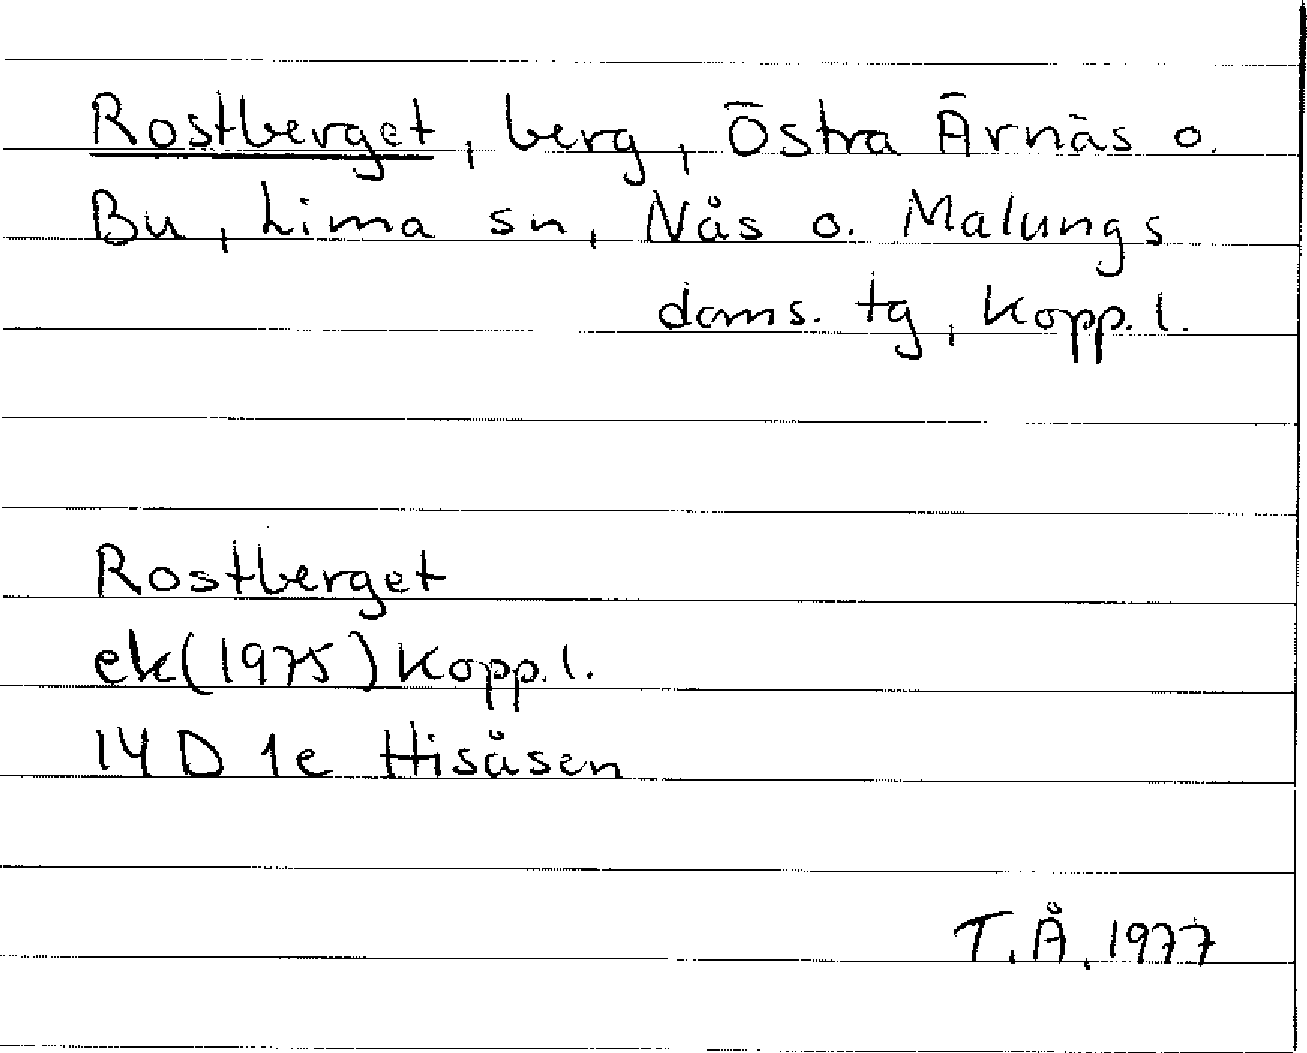 Rostberget, berg, Östra Ärnäs o.
Bu, Lima sn, Nås o. Malungs
doms. tg, Kopp. l.
Rostberget
ek(1975) Kopp. l.
14 D 1e Hisåsen
T.Å. 1977